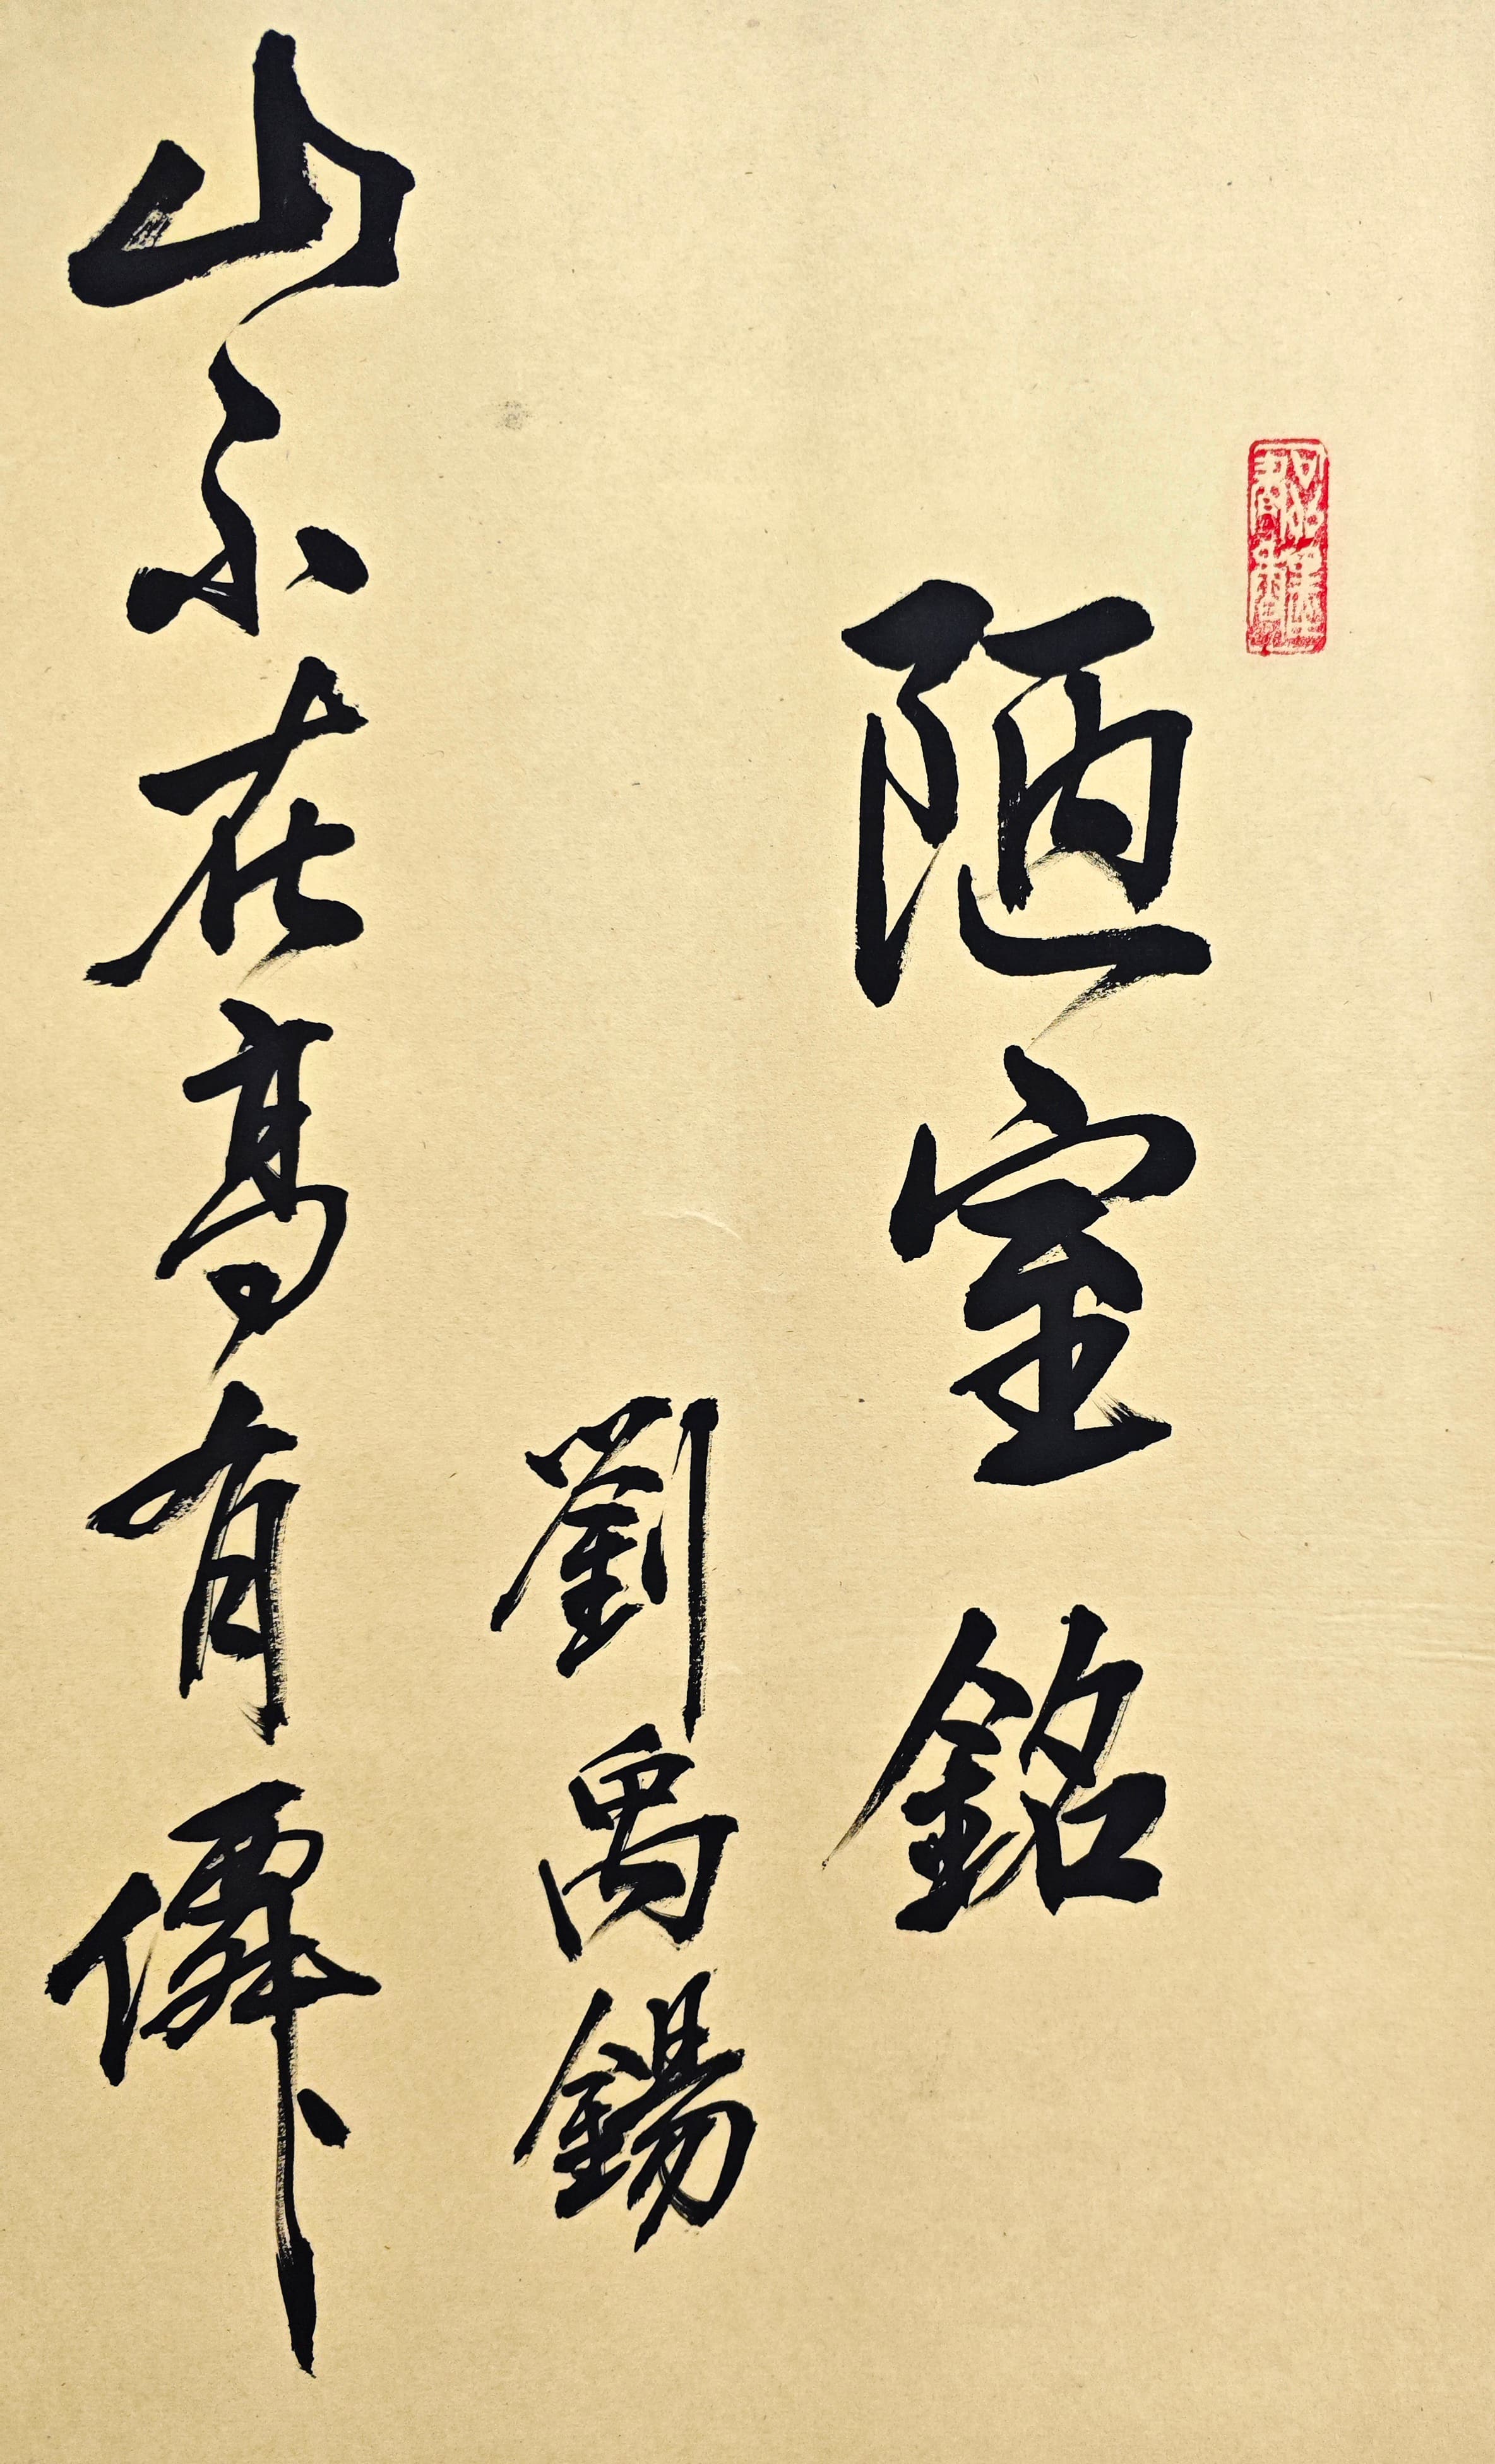 陋室銘
劉禹錫
山不在高有僊